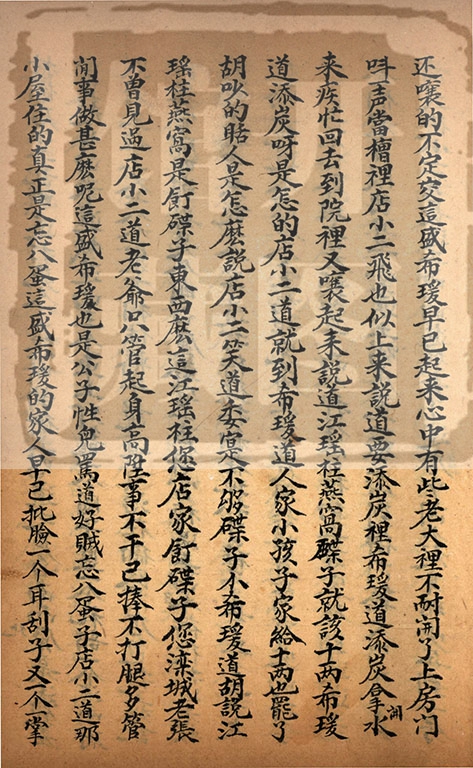 还嚷的不定交這盛希瑗早已起来心中有些老大裡不耐開了上房門
呌声當槽裡店小二飛也似上来説道要添炭裡希瑗道添炭拿水
来疾忙回去到院裡又嚷起来説道江瑶柱燕窩碟子就該十两希瑗
道添炭呀是怎的店小二道就到希瑗道人家小孩子家給十两也罷了
胡吵的聒人是怎麽説店小二笑道委实是不彀碟子个希瑗道胡説江
瑶柱燕窩是飣碟子東西麽這江瑶柱您店家飣碟子您滦城老張
不曾見過店小二道老爺只管起身高陞事不干己捧不打腿多管
閒事做甚麽呢這盛希瑗也是公子性兒罵道好賊忘八蛋子店小二道那
小屋住的真正是忘八蛋這盛希瑗的家人早已批臉一个耳刮子又一个掌